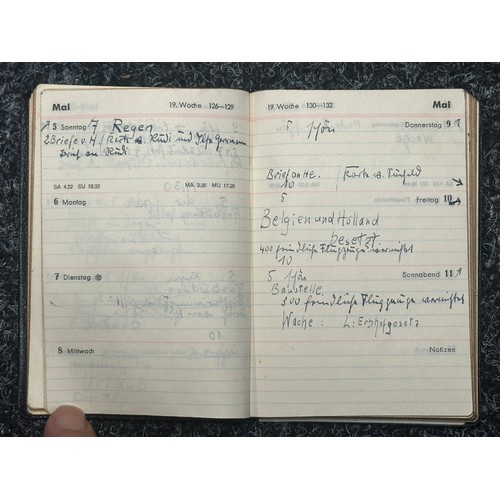 Mai
19. Woche 126—129
5 Sonntag 7 Regen
2 Briefe v. H. / Karte v. Rudi und
Brief an Rudi
SA 4.22 SU 19.33 MA 3.36 MU 17.26
6 Montag
7 Dienstag
8 Mittwoch
19. Woche 130—132
Mai
5 schön
Donnerstag 9
Brief an He. / Karte v.
10
5
Freitag 10
Belgien und Holland
besetzt
400 feindliche Flugzeuge vernichtet
10
5 schön
Sonnabend 11
Baustelle
300 feindliche Flugzeuge vernichtet
Wache: L: Erbhofgesetz
Notizen